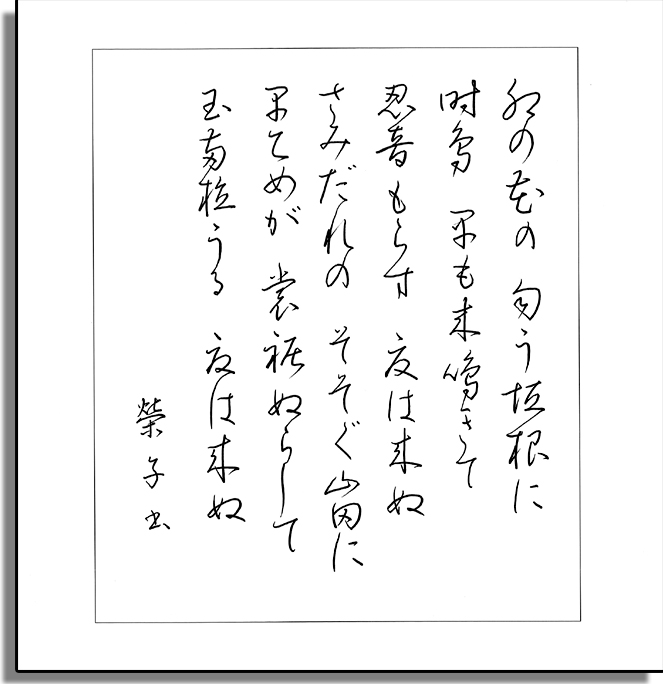 卯の花の 匂う垣根に
時鳥 早も来鳴きて
忍音もらす 夏は来ぬ
さみだれの そそぐ山田に
早乙女が 裳裾ぬらして
玉苗植うる 夏は来ぬ
榮子書